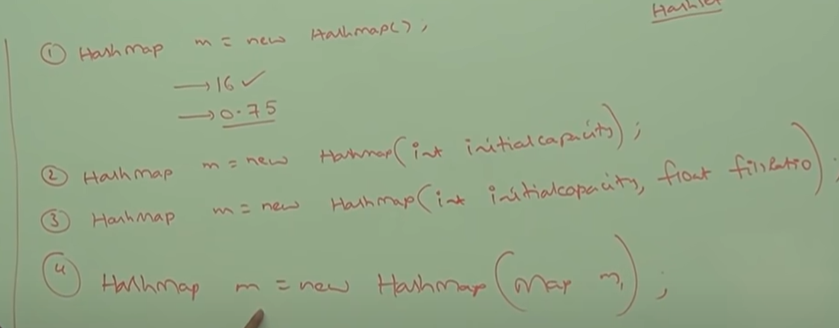 HashSet
① HashMap m = new HashMap();
→ 16 ✓
→ 0.75
② HashMap m = new HashMap(int initialcapacity);
③ HashMap m = new HashMap(int initialcapacity, float fillRatio);
④ HashMap m = new HashMap(Map m);